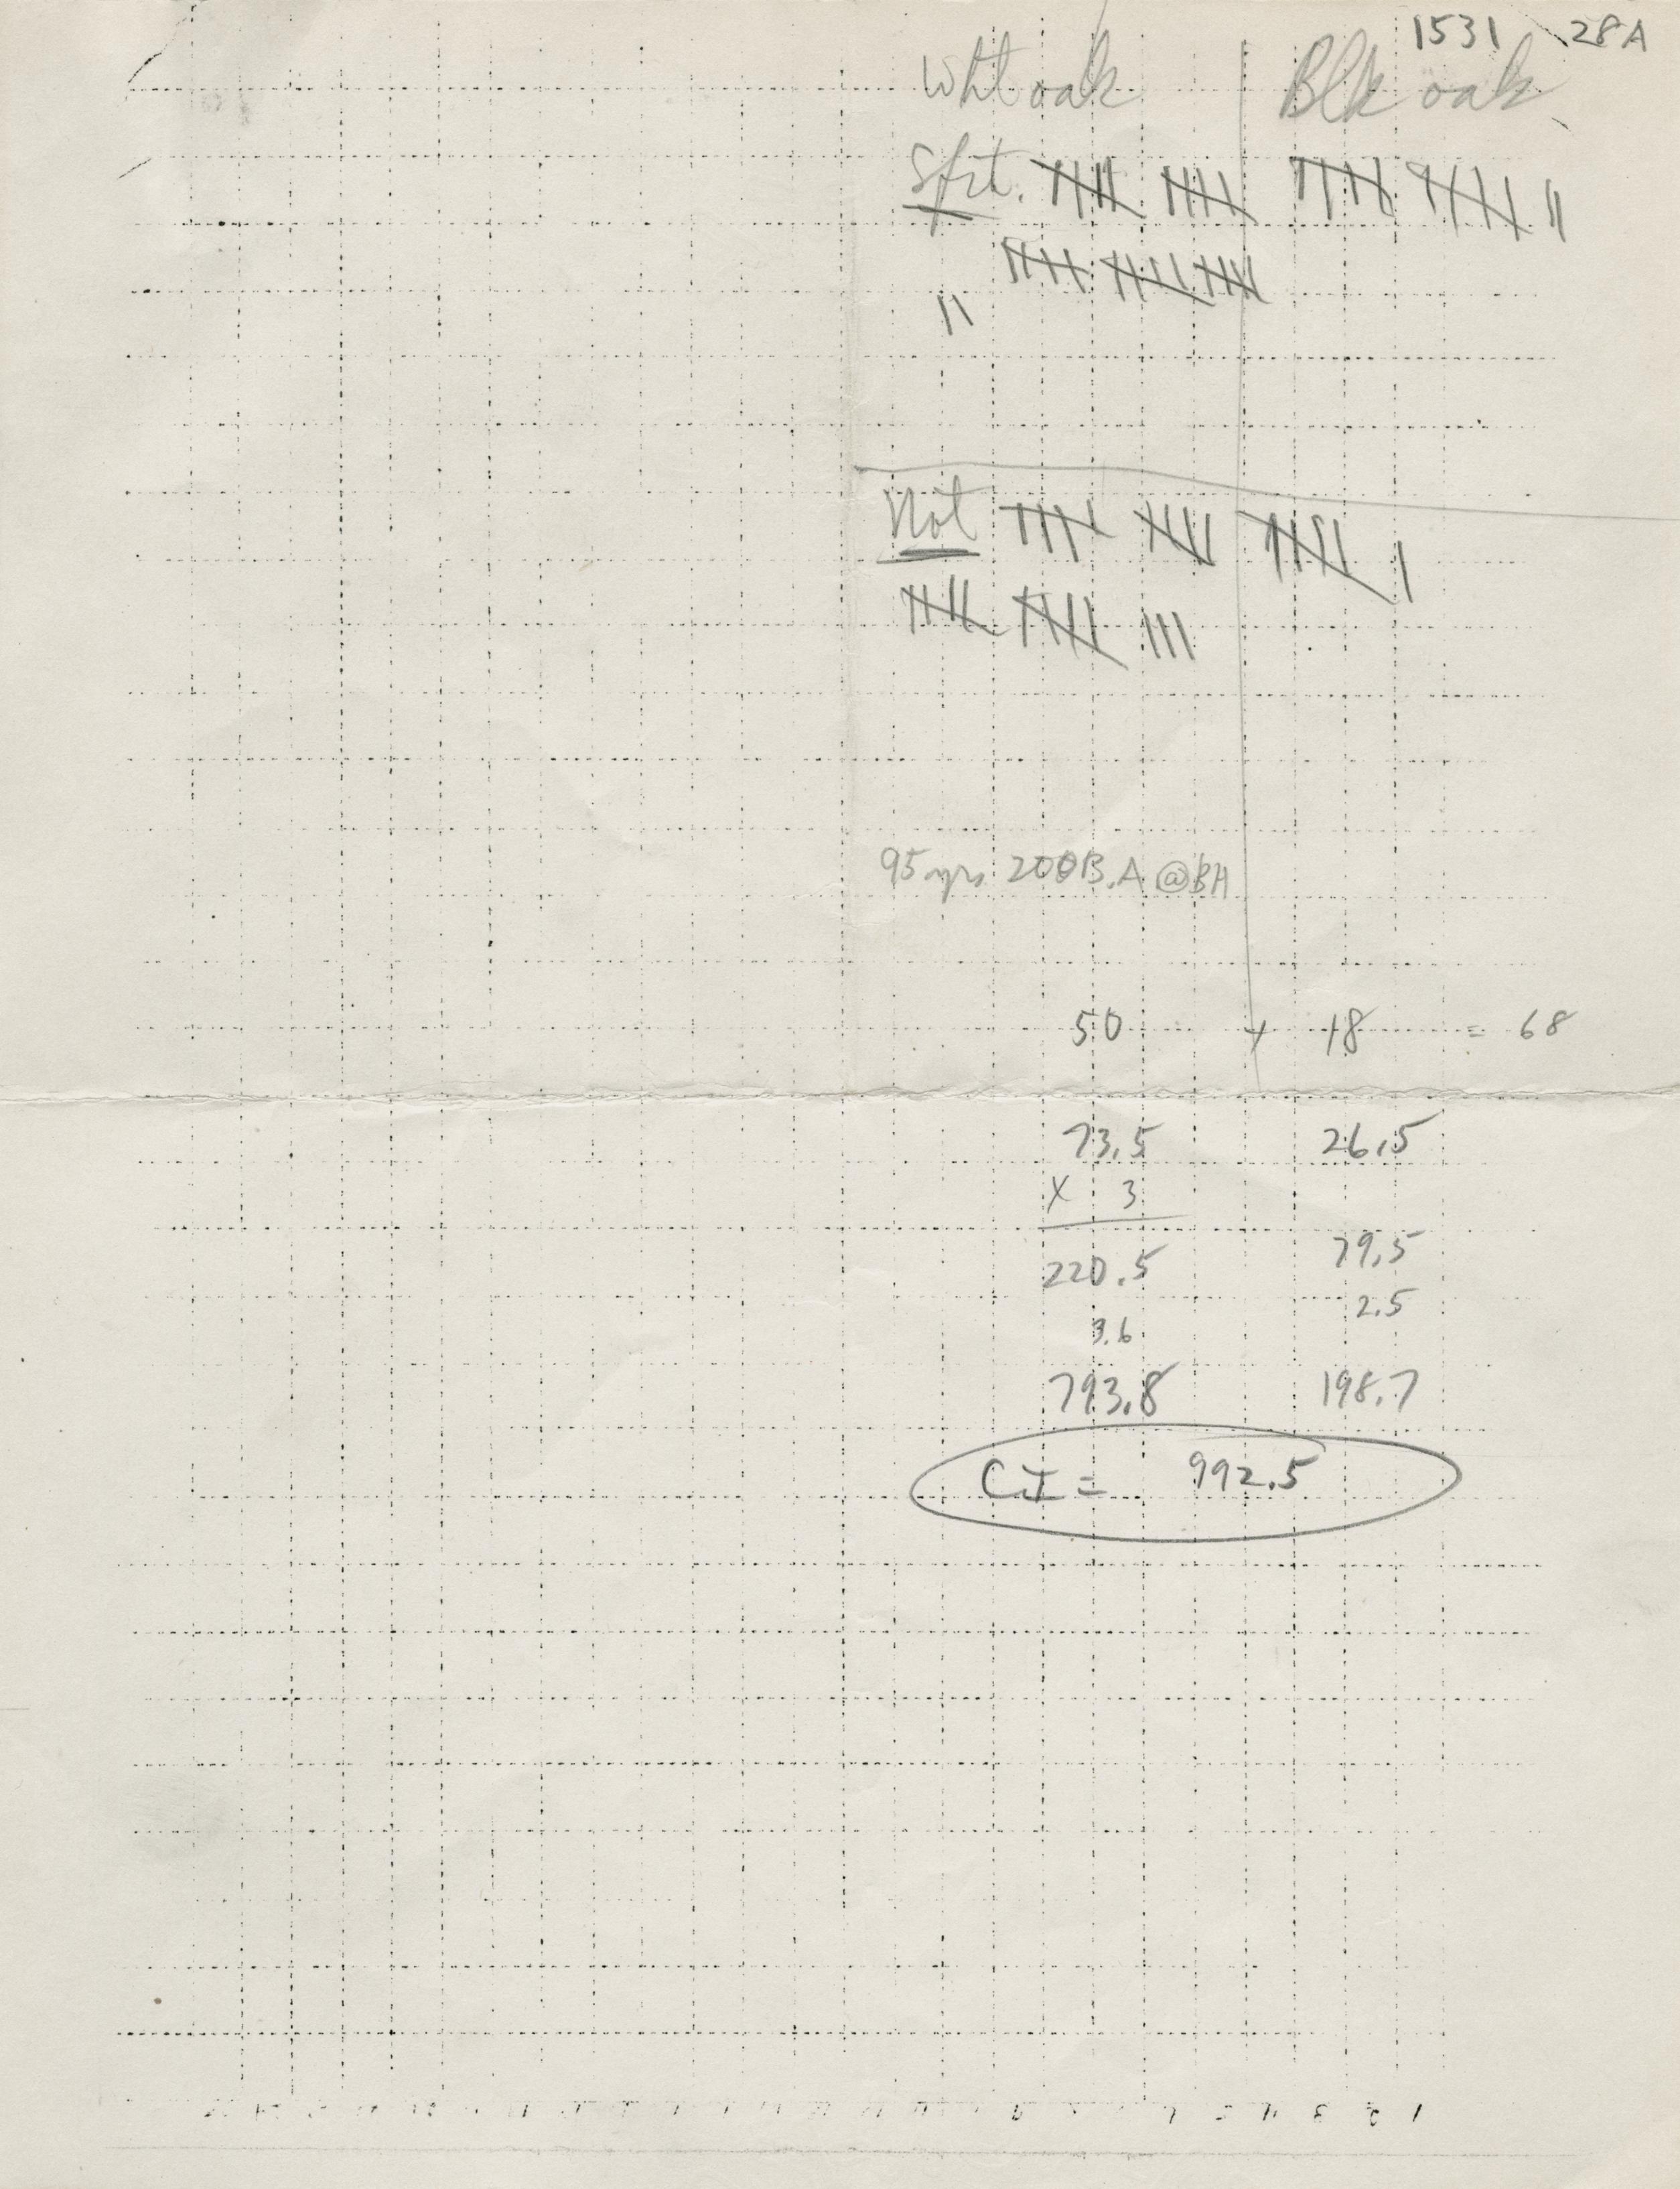 1531 28A
Wht oak Blk oak
Sfrt.
Not
95 yrs 200 B.A @BH
50 + 18 = 68
73.5 26.5
X 3
220.5 79.5
3.6 2.5
793.8 198.7
CI = 992.5